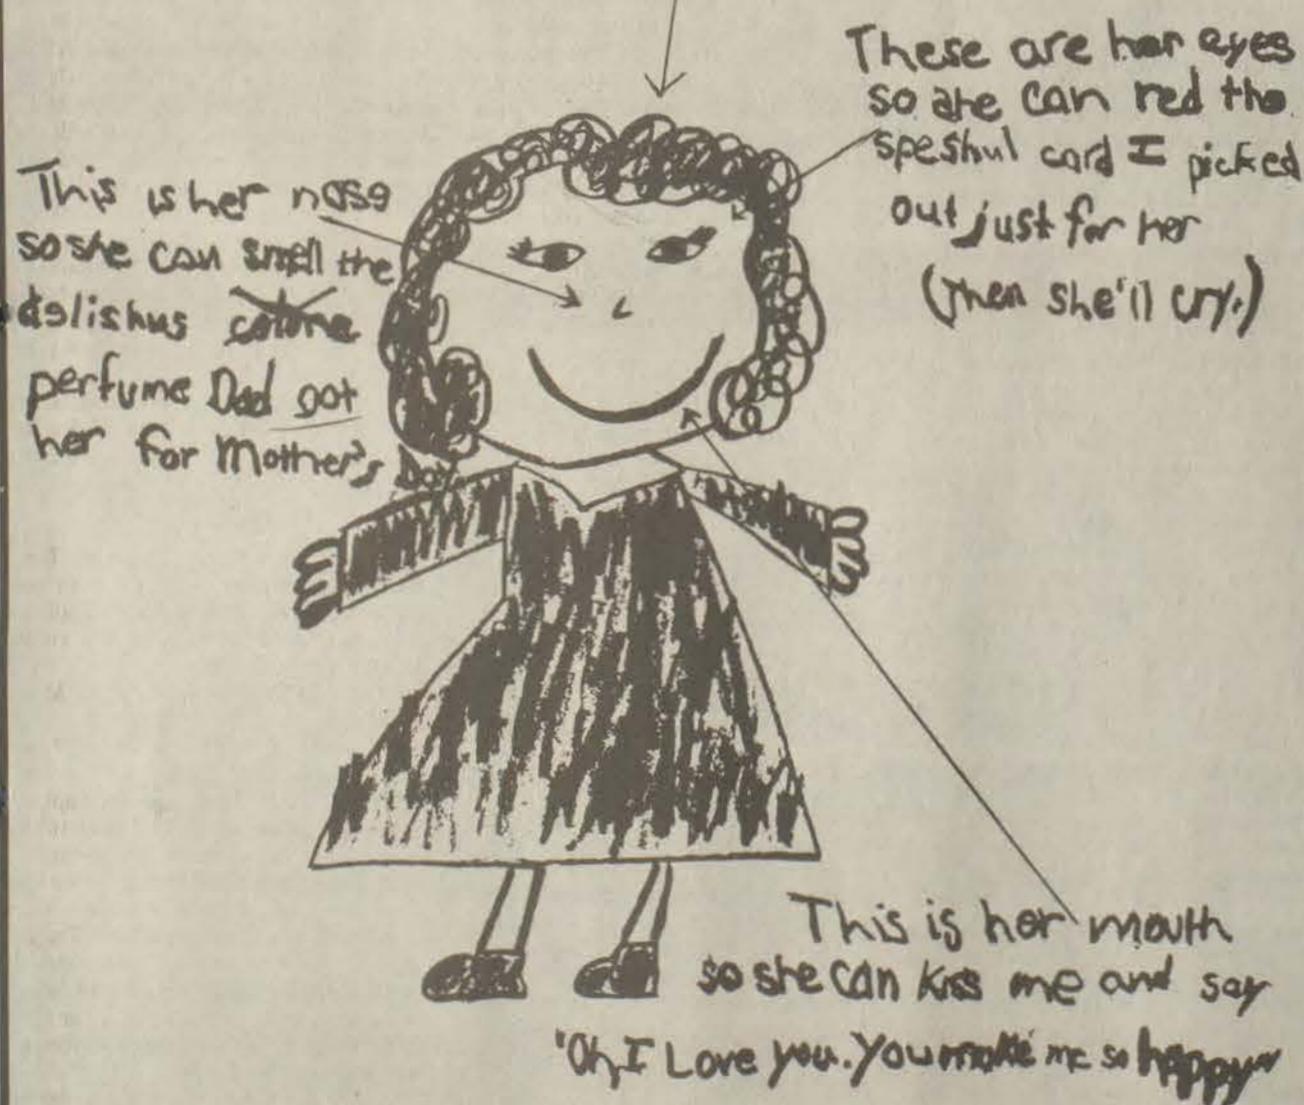 These are her eyes
so she can red the
speshul card I picked
out just for her
(Then she'll cry.)
This is her nose
so she can smell the
delishus colone
perfume Dad got
her for Mother's Day
This is her mouth
so she can kiss me and say
"Oh, I Love you. You make me so happy"